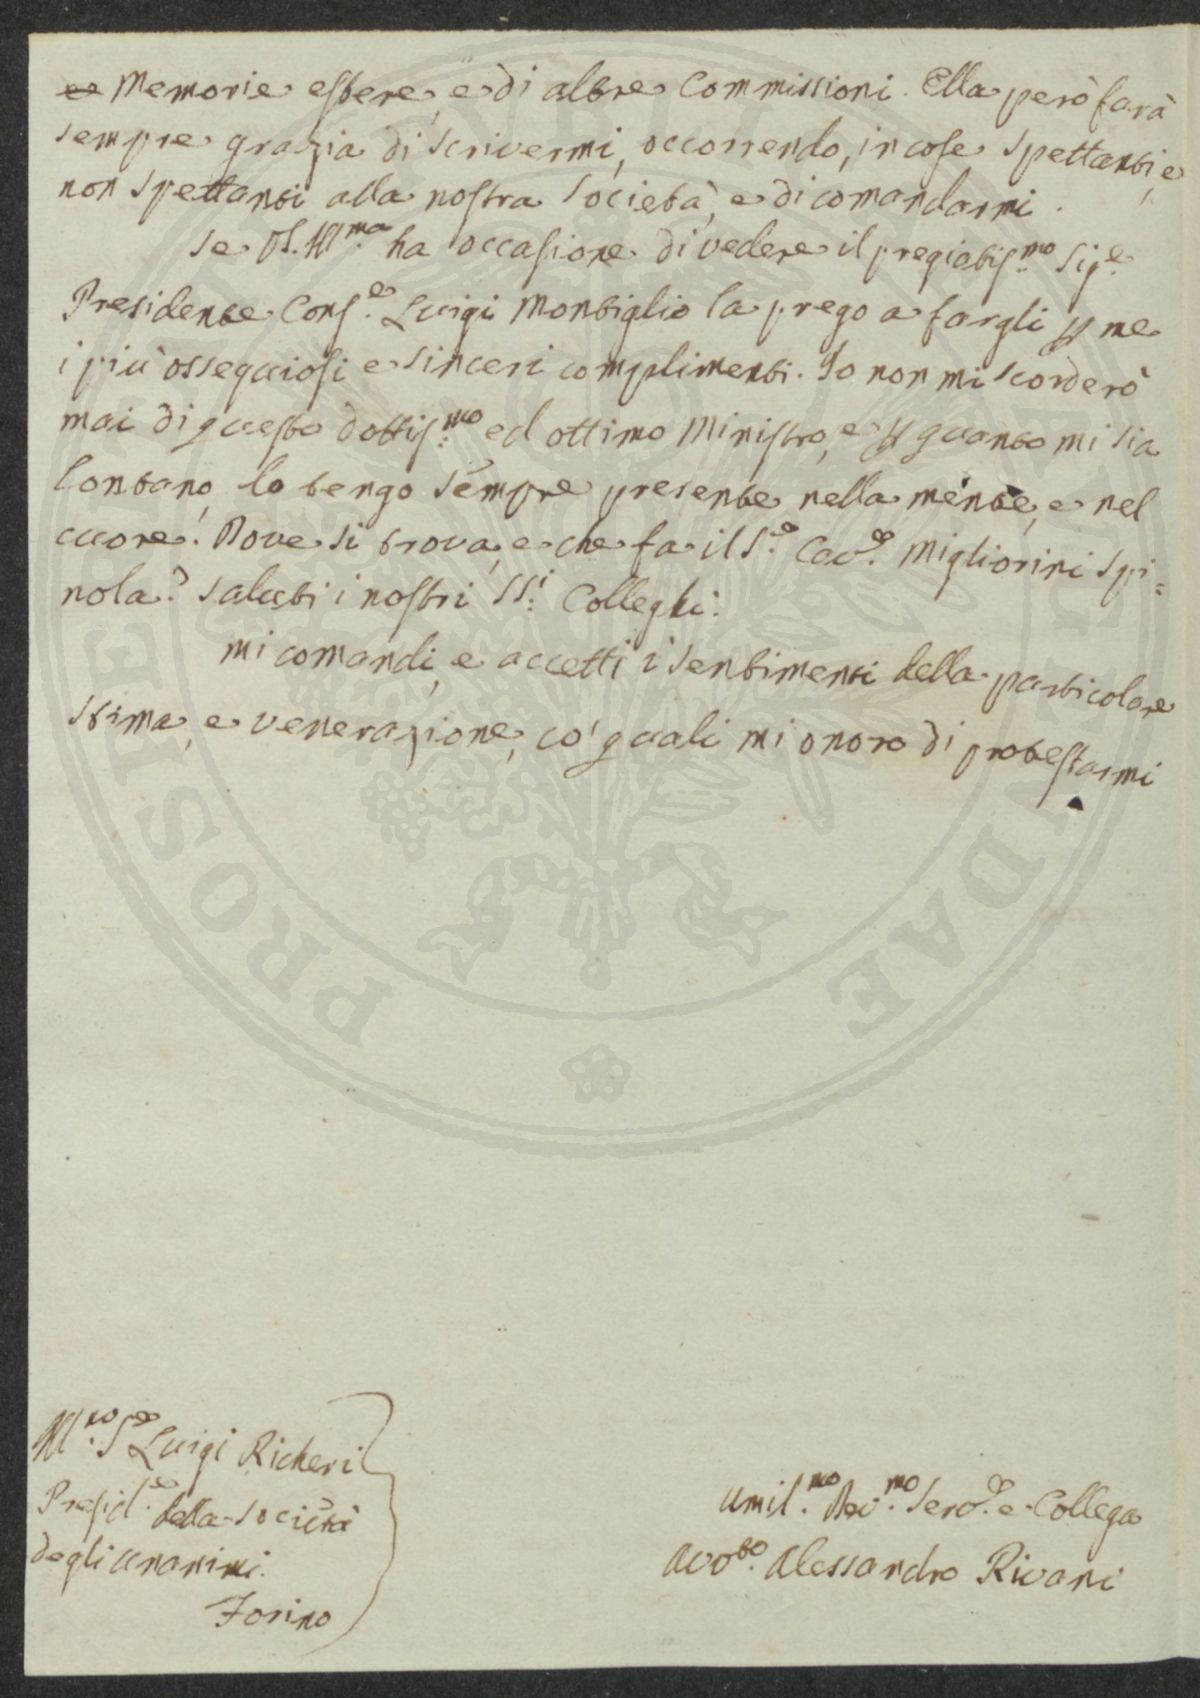 Memorie estere, e di altre Commissioni. Ella però farà
sempre grazia di scrivermi, occorrendo, in cose spettanti, e
non spettanti alla nostra Società, e di comandarmi.
Se V.S. Ill.ma ha occasione di vedere il pregiatis.mo Sig.e
Presidente Cons.e Luigi Montiglio la prego a fargli p me
i più ossequiosi e sinceri complimenti. Io non mi scorderò
mai di questo dottis.mo ed ottimo Ministro, e p quanto mi sia
lontano, lo tengo sempre presente nella mente, e nel
cuore. Dove si trova, e che fa il S.e Cav.e Migliorini Spi=
nola? Saluti i nostri SS.i Colleghi.
Mi comandi, e accetti i sentimenti della particolare
stima, e venerazione, co' quali mi onoro di protestarmi
Ill.mo S.e Luigi Richeri
Presid.e della Società
degli Unanimi.
Torino
Umil.mo Dev.mo Serv.e e Collega
Avv.to Alessandro Rivani
PROSPE
VENDAE